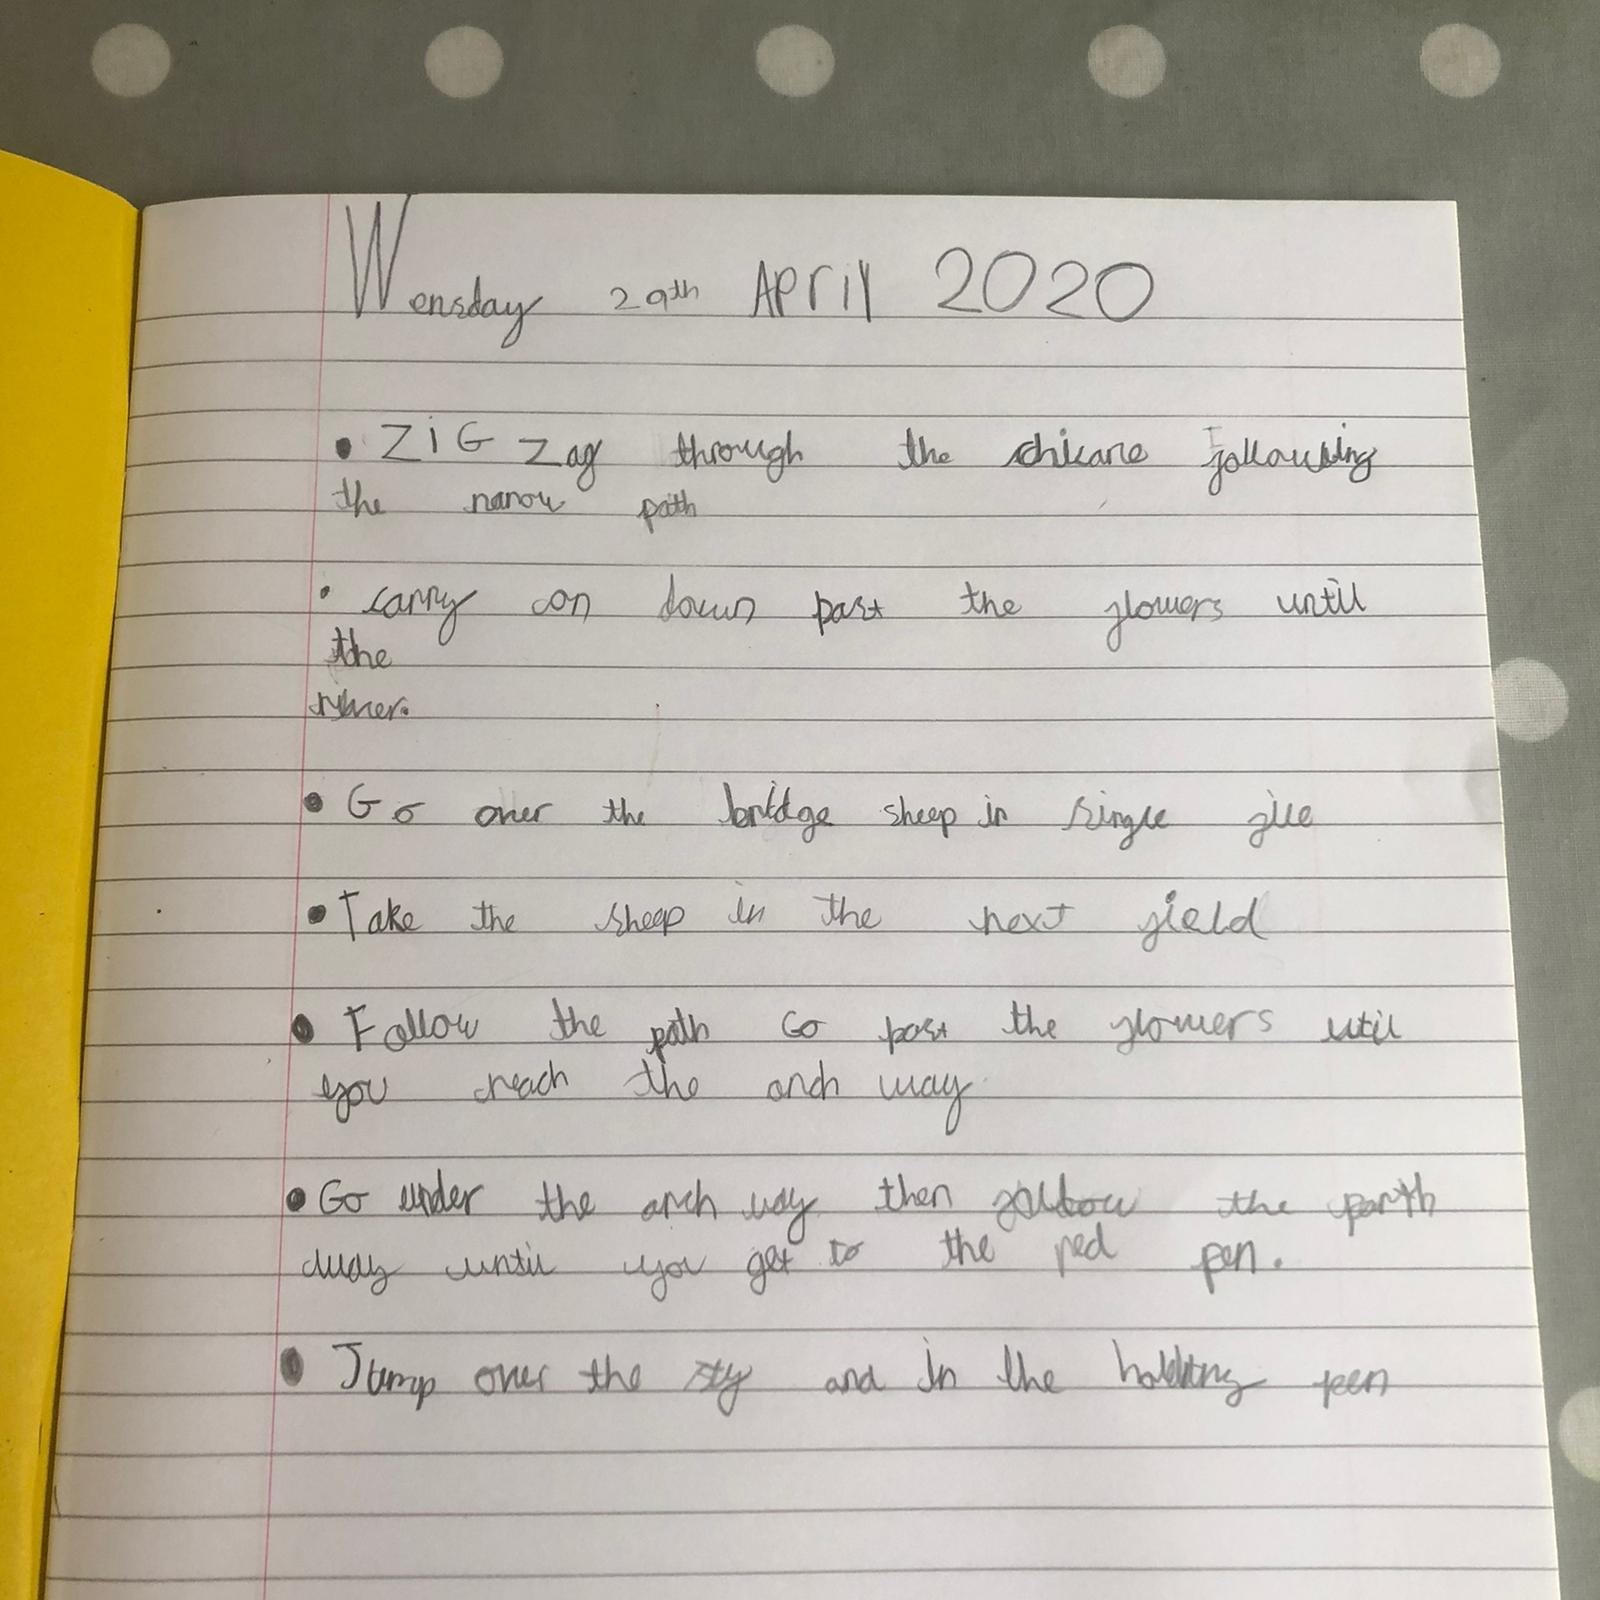 Wensday 29th APriL 2020
• ZiG Zag through the chicane following
the narow path
• carry on down past the flowers until
the
river.
• Go over the bridge sheep in single file
• Take the sheep in the next field
• Follow the path Go past the flowers util
you reach the arch way
• Go under the arch way then follow the parth
way until you get to the red pen.
• Jump over the sty and in the holding pen